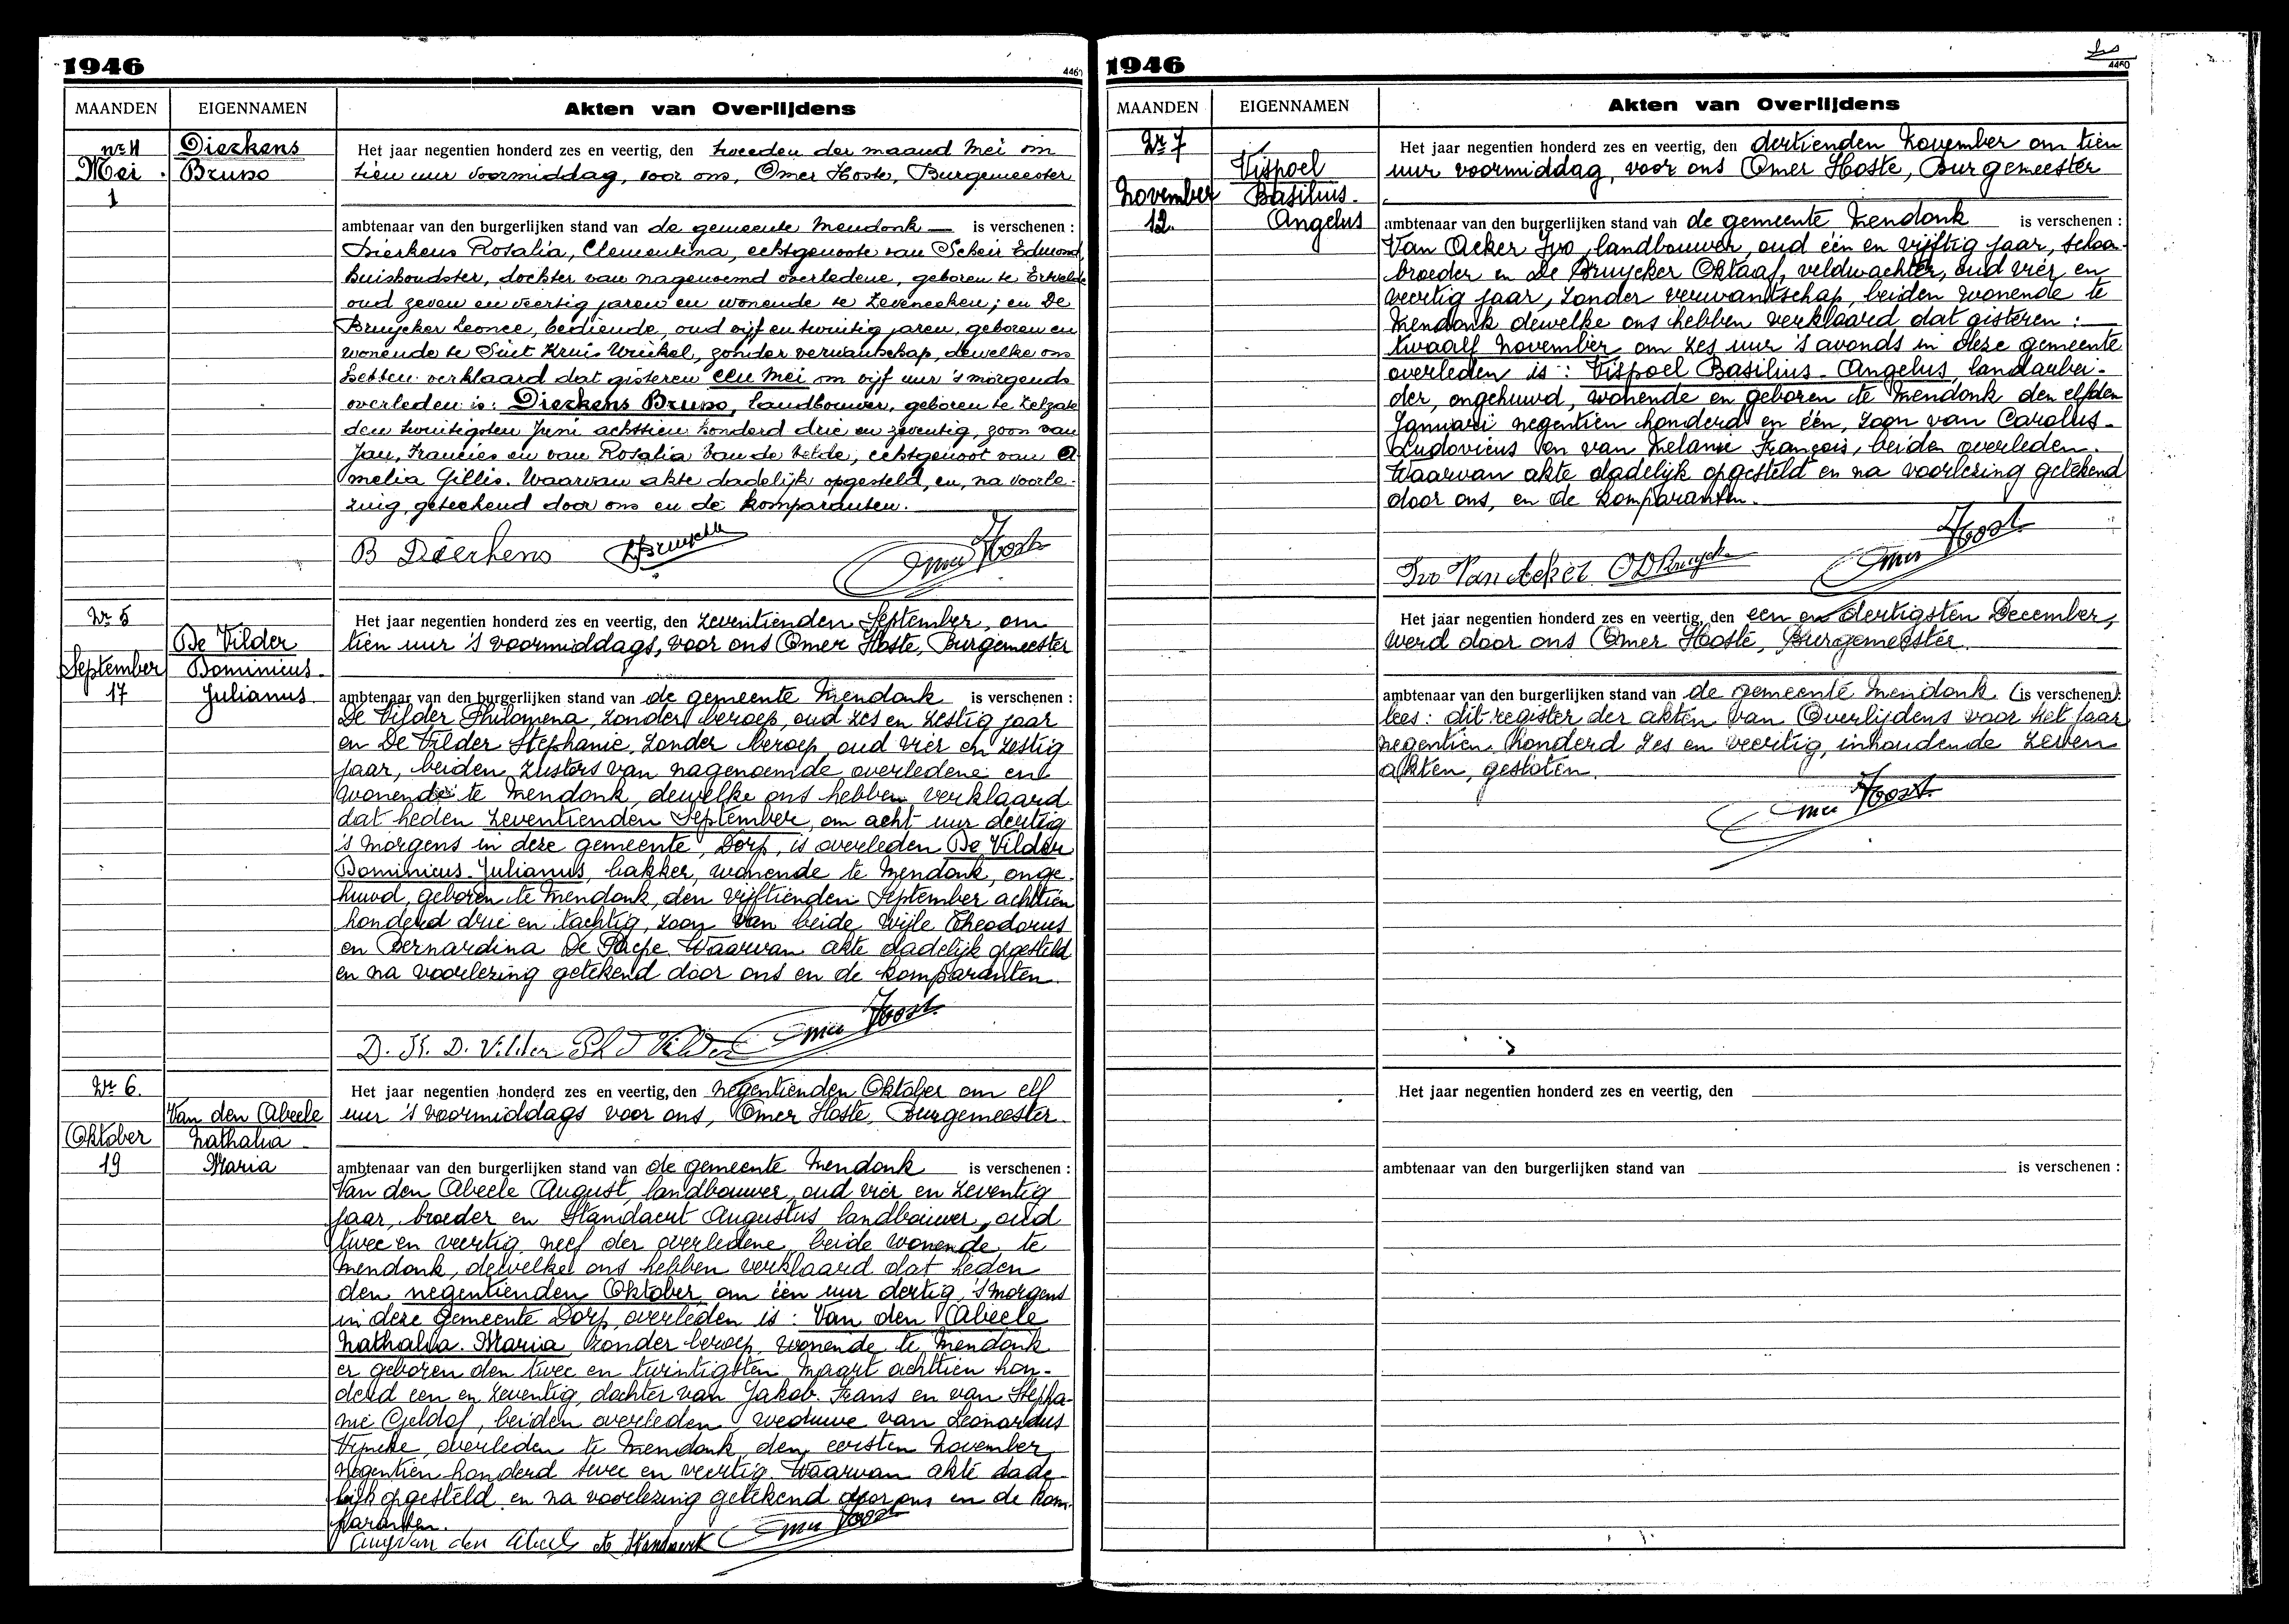 1946
4460
MAANDEN
EIGENNAMEN
Akten van Overlijdens
nr 4
Mei
1
Dierkens
Bruno
Het jaar negentien honderd zes en veertig, den tweeden der maand Mei om
tien uur voormiddag, voor ons, Omer Hoste, Burgemeester
ambtenaar van den burgerlijken stand van de gemeente Mendonk — is verschenen :
Dierkens Rosalia, Clementina, echtgenoote van Scheir Edmond,
huishoudster, dochter van nagenoemd overledene, geboren te Ertvelde
oud zeven en veertig jaren en wonende te Zeveneeken; en De
Bruycker Leonce, bediende, oud vijf en twintig jaren, geboren en
wonende te Sint Kruis Winkel, zonder verwantschap, dewelke ons
hebben verklaard dat gisteren een Mei om vijf uur 's morgends
overleden is: Dierkens Bruno, landbouwer, geboren te Zelzate
den twintigsten Juni achttien honderd drie en zeventig, zoon van
Jan, Francies en van Rosalia Van de Velde, echtgenoot van A
melia Gillis. Waarvan akte dadelijk opgesteld, en, na voorle-
zing, geteekend door ons en de komparanten.
B Dierkens Omer Hoste
Nr 5
September
17
De Vilder
Dominicus-
Julianus
Het jaar negentien honderd zes en veertig, den zeventienden September, om
tien uur 's voormiddags, voor ons Omer Hoste, Burgemeester
ambtenaar van den burgerlijken stand van de gemeente Mendonk is verschenen :
De Vilder Philomena, zonder beroep, oud zes en zestig jaar
en De Vilder Stephanie, zonder beroep, oud vier en zestig
jaar, beiden zusters van nagenoemde overledene en
wonende te Mendonk, dewelke ons hebben verklaard
dat heden zeventienden September, om acht uur dertig
's morgens in deze gemeente, Dorp, is overleden De Vilder
Dominicus-Julianus, bakker, wonende te Mendonk, onge-
huwd, geboren te Mendonk, den vijftienden September achttien
honderd drie en tachtig, zoon van beide wijle Theodorus
en Bernardina De Paepe. Waarvan akte dadelijk opgesteld
en na voorlezing getekend door ons en de komparanten.
D. St. D. Vilder Ph D Vilder Omer Hoste
Nr 6.
Oktober
19
Van den Abeele
Nathalia-
Maria
Het jaar negentien honderd zes en veertig, den negentienden Oktober om elf
uur 's voormiddags voor ons, Omer Hoste, Burgemeester
ambtenaar van den burgerlijken stand van de gemeente Mendonk is verschenen :
Van den Abeele August, landbouwer, oud vier en zeventig
jaar, broeder en Standaert Augustus, landbouwer, oud
twee en veertig, neef der overledene, beide wonende te
Mendonk, dewelke ons hebben verklaard dat heden
den negentienden Oktober om één uur dertig, 's morgens
in deze gemeente Dorp, overleden is : Van den Abeele
Nathalia-Maria, zonder beroep, wonende te Mendonk
er geboren den twee en twintigsten Maart achttien hon-
derd een en zeventig, dochter van Jakob-Frans en van Stepha-
nie Geldof, beiden overleden, weduwe van Leonardus
Vyncke, overleden te Mendonk, den eersten November
negentien honderd twee en veertig. Waarvan akte dade-
lijk opgesteld en na voorlezing getekend door ons en de kom-
paranten.
Aug van den Abeele Omer Hoste
1946
4460
MAANDEN
EIGENNAMEN
Akten van Overlijdens
Nr 7
November
12.
Vispoel
Basilius-
Angelus
Het jaar negentien honderd zes en veertig, den dertienden November om tien
uur voormiddag, voor ons Omer Hoste, Burgemeester
ambtenaar van den burgerlijken stand van de gemeente Mendonk is verschenen :
Van Acker Ivo, landbouwer, oud één en vijftig jaar, schoon-
broeder en De Bruycker Oktaaf, veldwachter, oud vier en
veertig jaar, zonder verwantschap, beiden wonende te
Mendonk dewelke ons hebben verklaard dat gisteren :
twaalf November om zes uur 's avonds in deze gemeente
overleden is : Vispoel Basilius-Angelus, landarbei-
der, ongehuwd, wonende en geboren te Mendonk den elfden
Januari negentien honderd en één, zoon van Carolus-
Ludovicus en van Melanie François, beiden overleden.
Waarvan akte dadelijk opgesteld en na voorlezing getekend
door ons, en de komparanten.
Ivo Van Acker O D Bruycker Omer Hoste
Het jaar negentien honderd zes en veertig, den een en dertigsten December,
werd door ons Omer Hoste, Burgemeester
ambtenaar van den burgerlijken stand van de gemeente Mendonk (is verschenen):
lees : dit register der akten van Overlijdens voor het jaar
negentien honderd zes en veertig, inhoudende zeven
akten, gesloten.
Omer Hoste
Het jaar negentien honderd zes en veertig, den
ambtenaar van den burgerlijken stand van is verschenen :